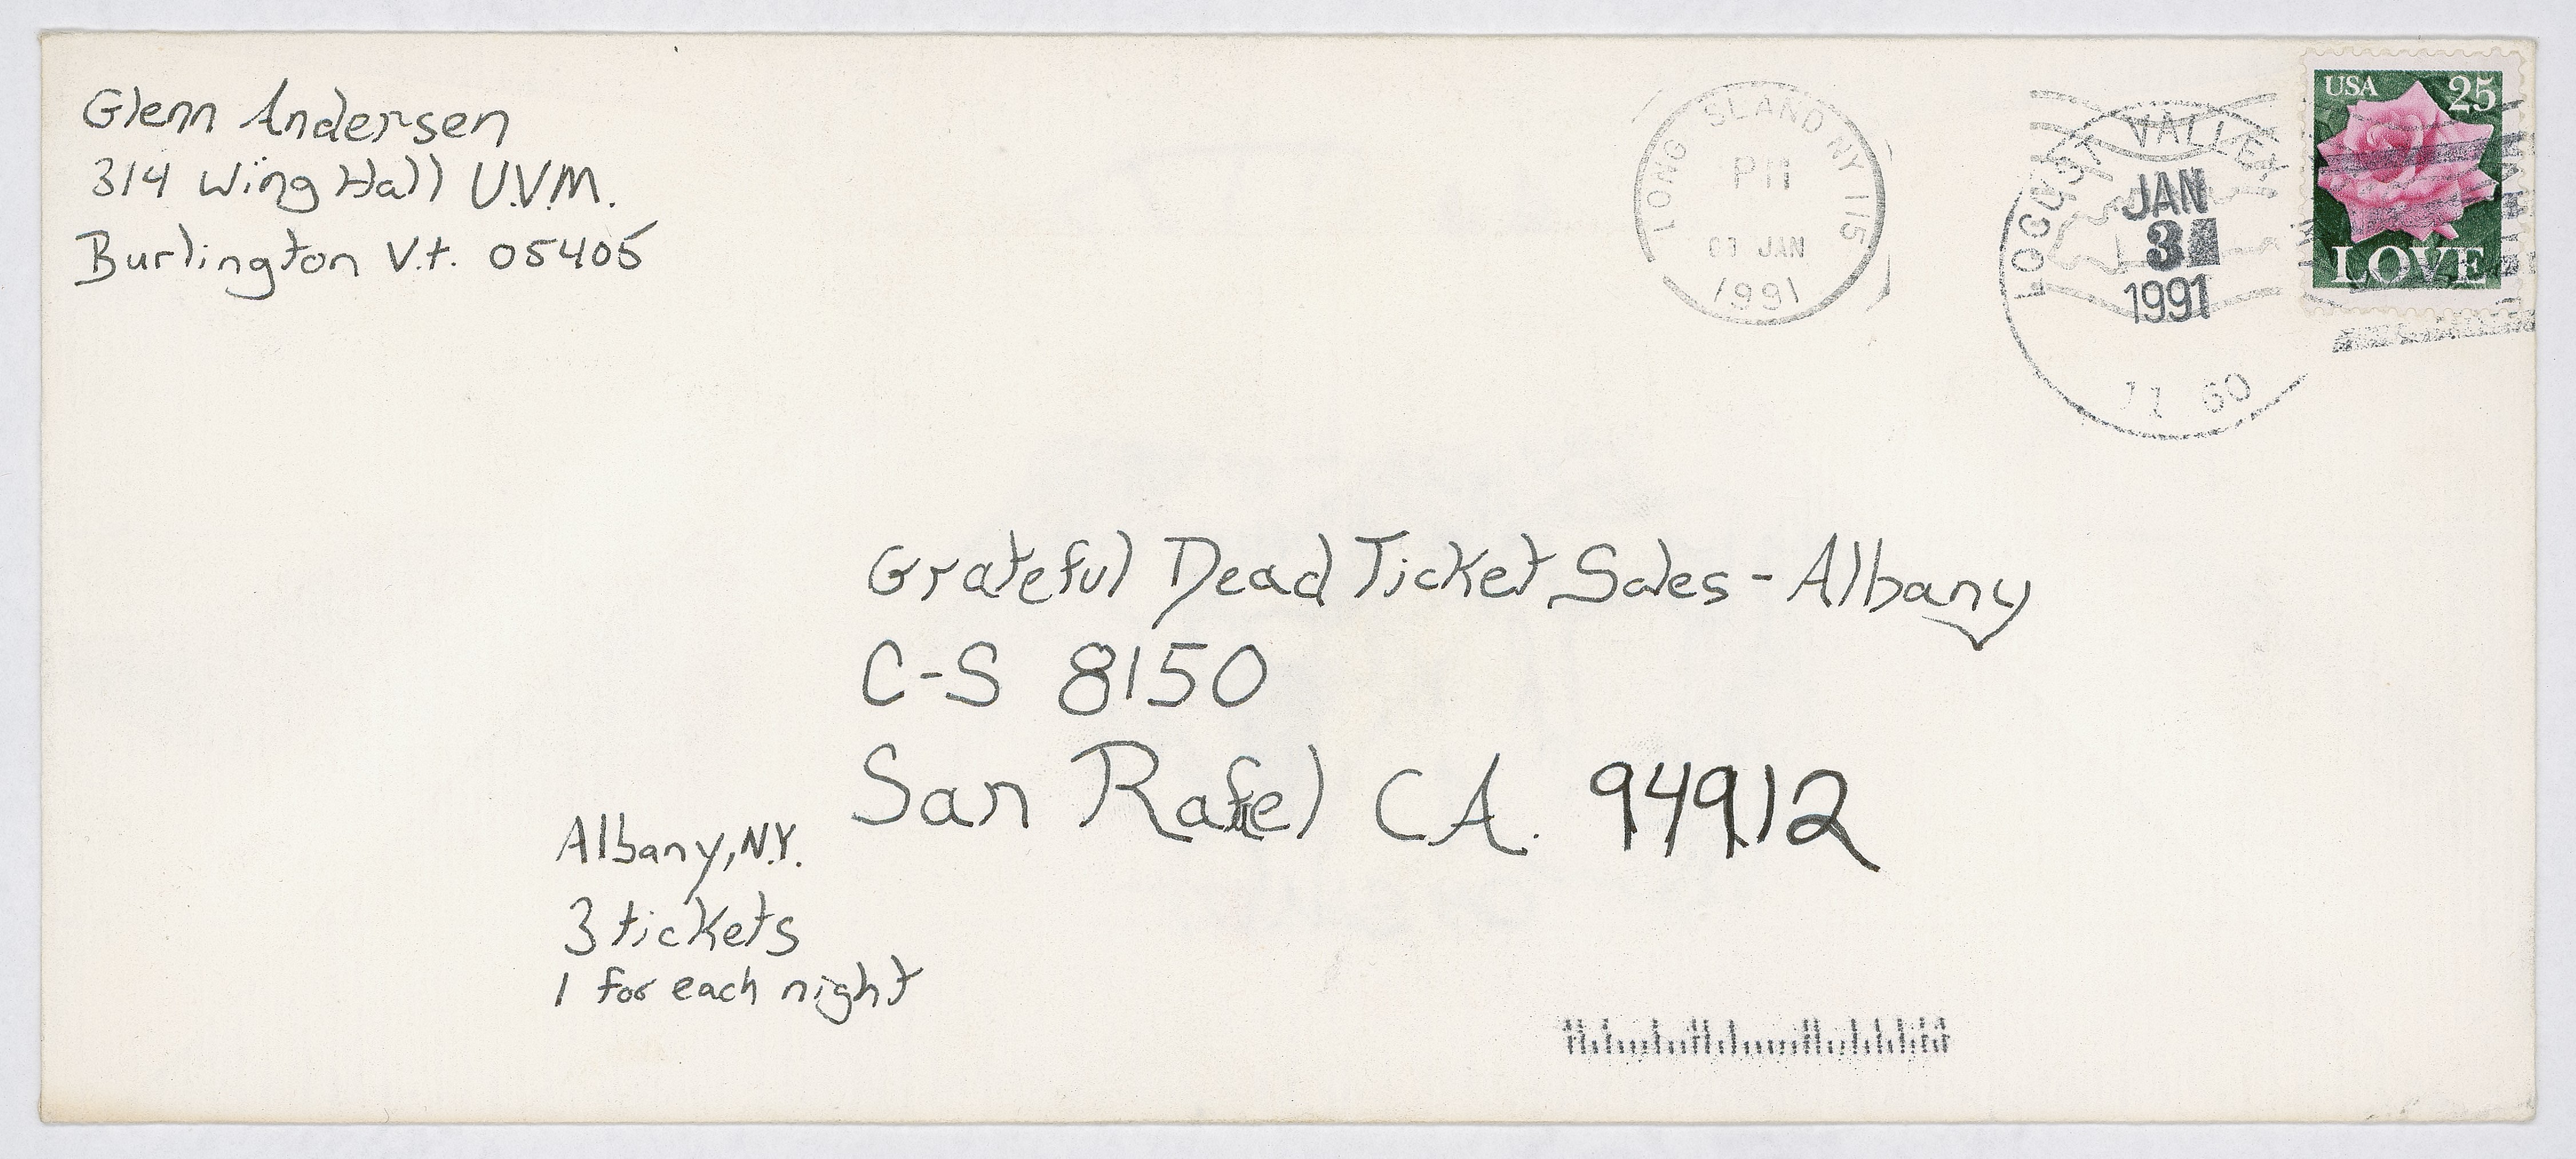 Glenn Andersen
314 Wing Hall U.V.M.
Burlington V.t. 05405
LONG ISLAND NY 115
PM
03 JAN
1991
LOCUST VALLEY
JAN
3
1991
USA 25
LOVE
Grateful Dead Ticket Sales - Albany
C-S 8150
San Rafel CA. 94912
Albany, N.Y.
3 tickets
1 for each night